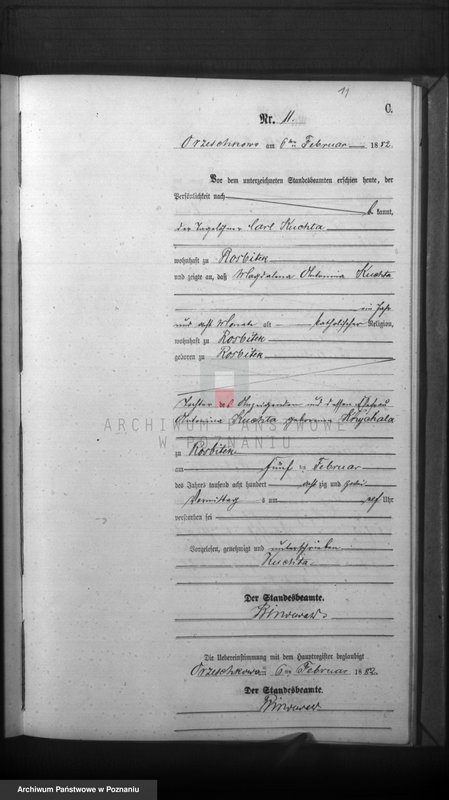 11
C.
Nr. 11.
Orzeschkowo am 6ten Februar 1882.
Vor dem unterzeichneten Standesbeamten erschien heute, der
Persönlichkeit nach
bekannt,
der Tagelöhner Carl Kuchta
wohnhaft zu Rorbitek
und zeigte an, daß Magdalena Antonina Kuchta
ein Jahr
und acht Monate alt katholischer Religion,
wohnhaft zu Rorbitek
geboren zu Rorbitek
Tochter des Anzeigenden und dessen Ehefrau
Antonina Kuchta geborenen
zu Rorbitek
am fünf ten Februar
des Jahres tausend acht hundert acht zig und zwei
Vormittag s um elf Uhr
verstorben sei
Vorgelesen, genehmigt und unterschrieben
Kuchta
Der Standesbeamte.
Die Uebereinstimmung mit dem Hauptregister beglaubigt
Orzeschkowo am 6ten Februar 1882.
Der Standesbeamte.
ARCHIWUM PAŃSTWOWE
W POZNANIU
Archiwum Państwowe w Poznaniu